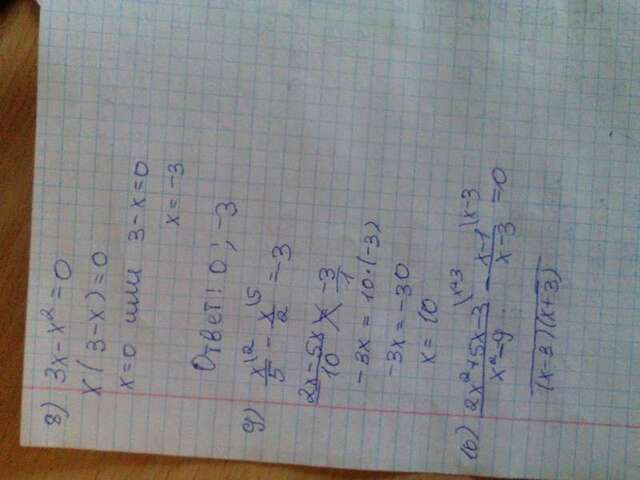 8) 3x - x² = 0
x(3-x) = 0
x=0 или 3-x=0
x = -3
Ответ: 0; -3
9) x\2/5 - x\5/2 = -3
2x-5x/10 = -3/1
-3x = 10·(-3)
-3x = -30
x = 10
10) 2x²+5x-3/x²-9 \x+3 - x-1/x-3 \x-3 = 0
(x-3)(x+3)